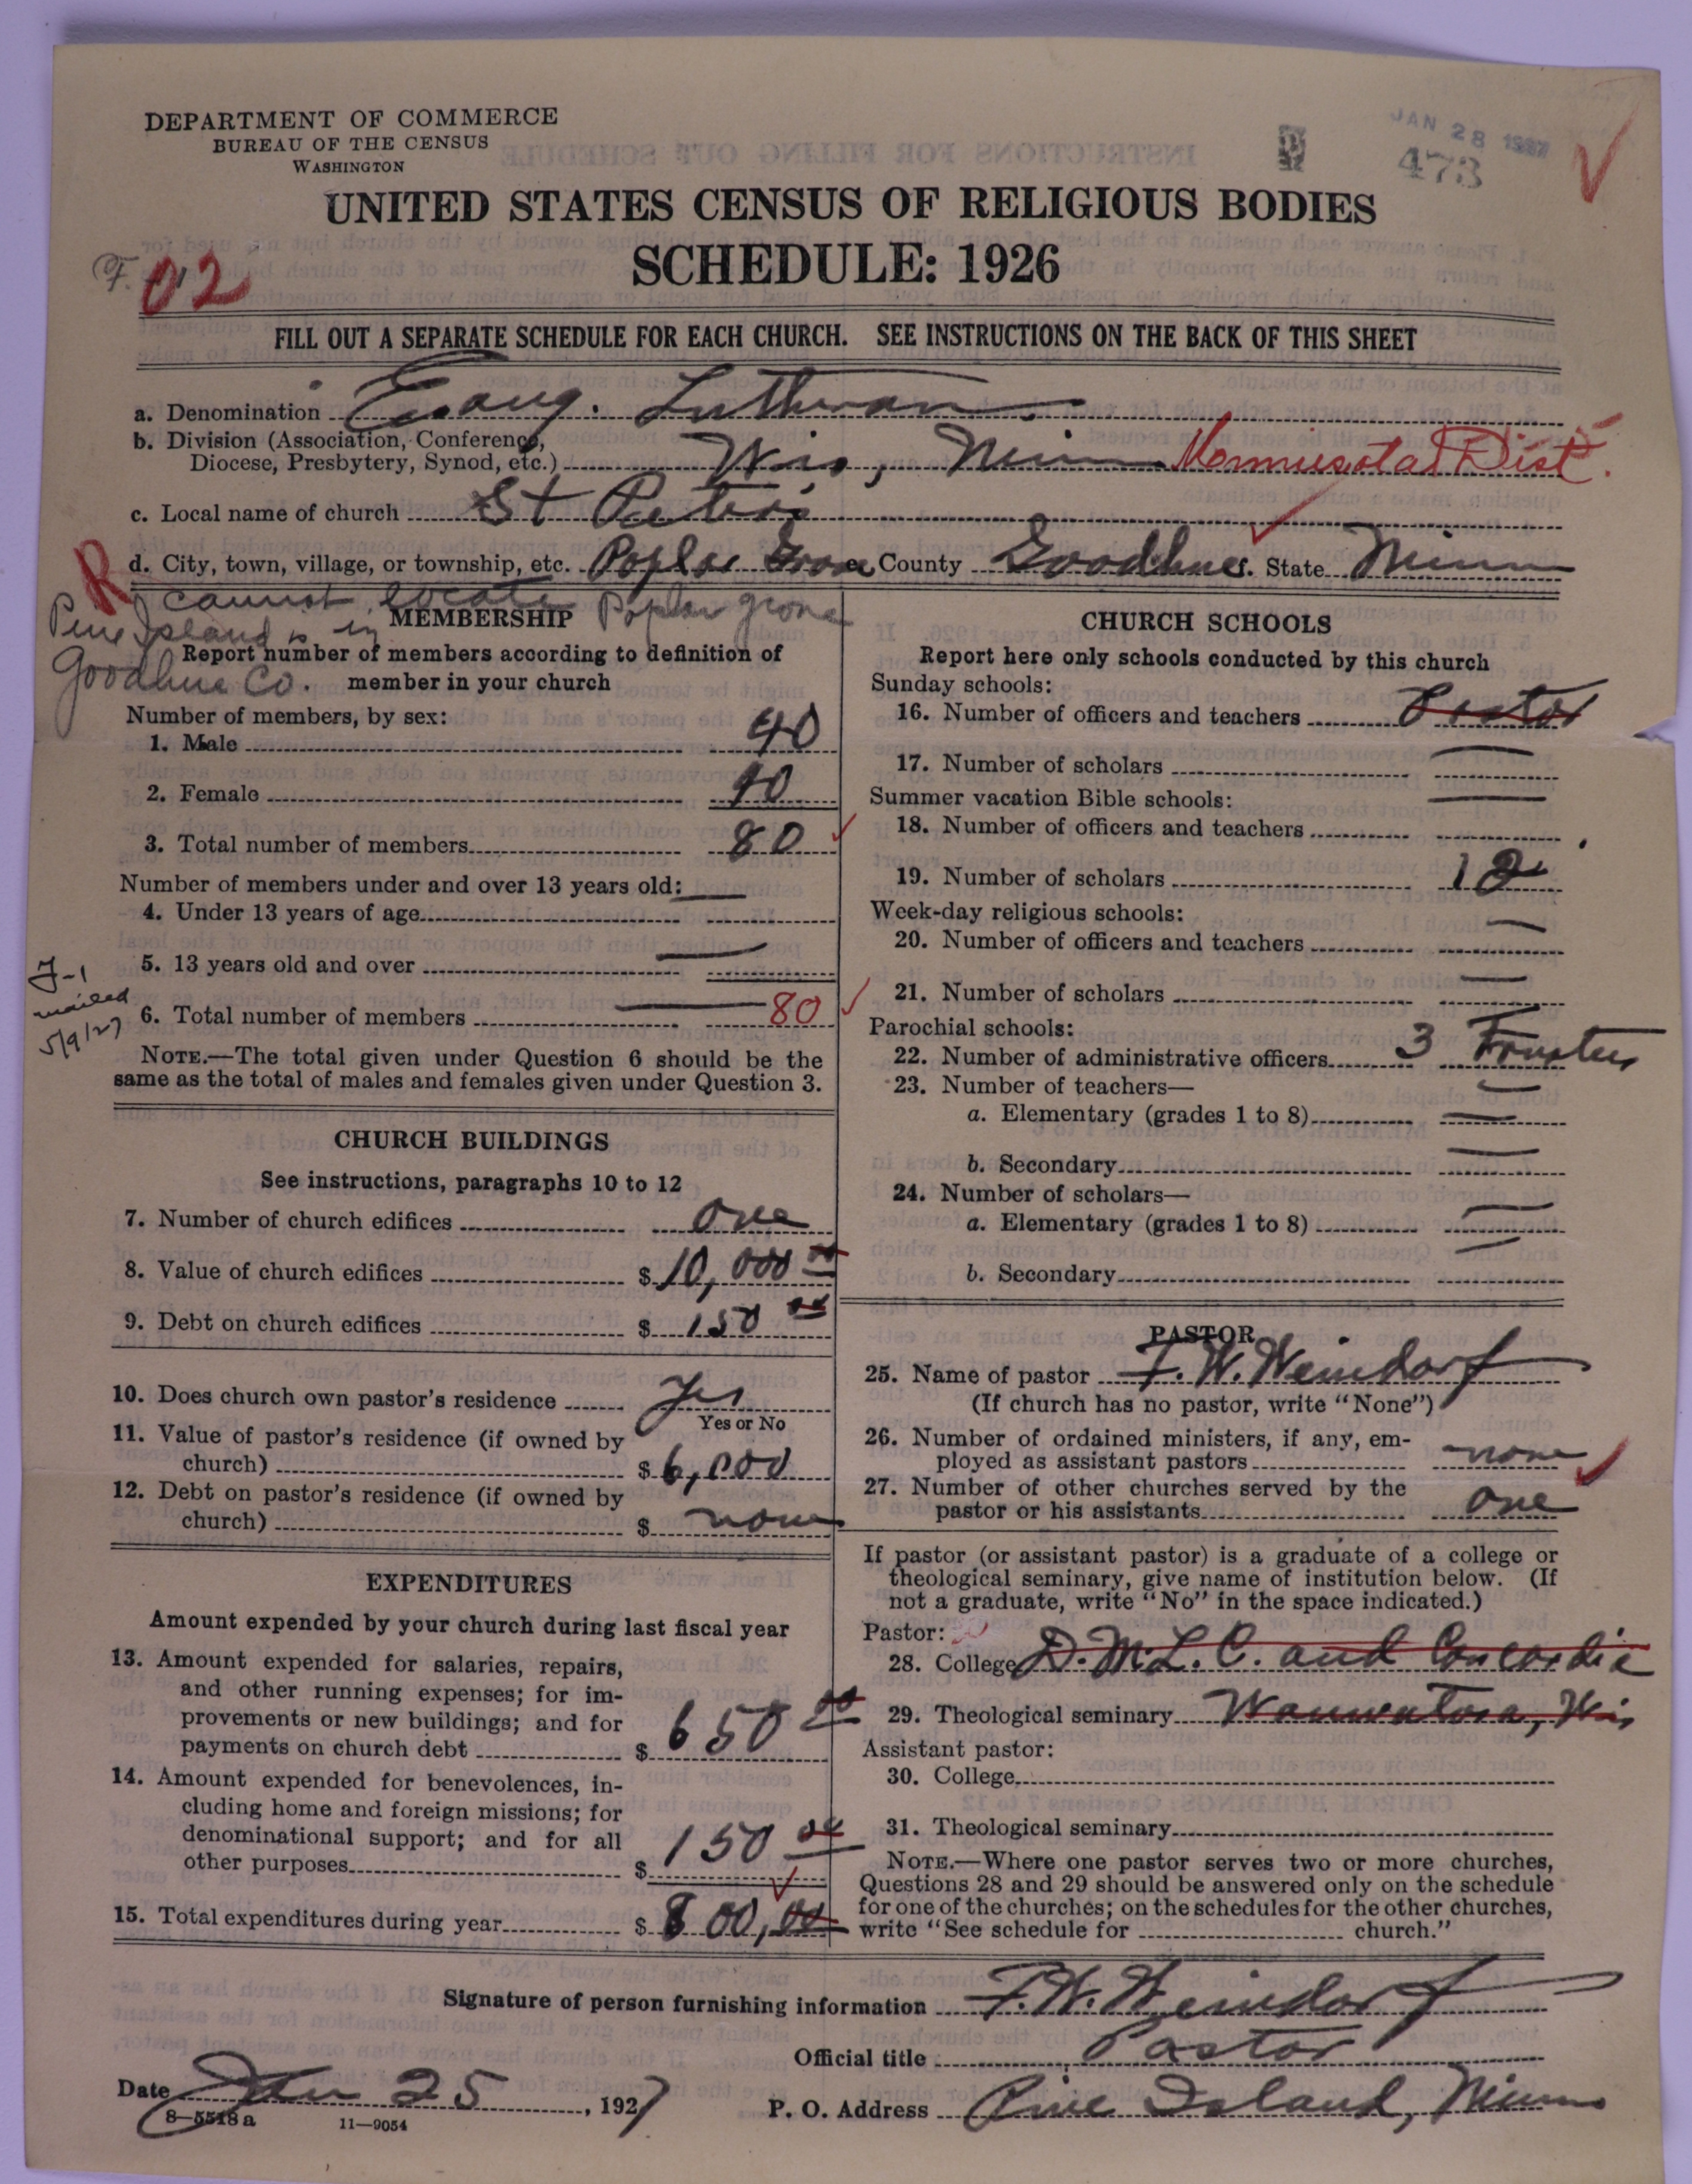 DEPARTMENT OF COMMERCE
BUREAU OF THE CENSUS
WASHINGTON
JAN 28 1927
473
UNITED STATES CENSUS OF RELIGIOUS BODIES
SCHEDULE: 1926
F. 02
FILL OUT A SEPARATE SCHEDULE FOR EACH CHURCH. SEE INSTRUCTIONS ON THE BACK OF THIS SHEET
a. Denomination Evang. Lutheran
b. Division (Association, Conference,
Diocese, Presbytery, Synod, etc.) Wis, Minn Dist.
c. Local name of church St Peters
R d. City, town, village, or township, etc. Poplar Grove County Goodhue. State Minn
cannot locate Poplar grove
Pine Island is in
Goodhue Co.
MEMBERSHIP
Report number of members according to definition of
member in your church
Number of members, by sex:
1. Male 40
2. Female 40
3. Total number of members 80
Number of members under and over 13 years old: —
4. Under 13 years of age
5. 13 years old and over —
6. Total number of members — 80
J-1
mailed
5/9/27
NOTE.—The total given under Question 6 should be the
same as the total of males and females given under Question 3.
CHURCH BUILDINGS
See instructions, paragraphs 10 to 12
7. Number of church edifices one
8. Value of church edifices $ 10,000 00
9. Debt on church edifices $ 150 00
10. Does church own pastor's residence Yes
Yes or No
11. Value of pastor's residence (if owned by
church) $ 6,000
12. Debt on pastor's residence (if owned by
church) $ none
EXPENDITURES
Amount expended by your church during last fiscal year
13. Amount expended for salaries, repairs,
and other running expenses; for im-
provements or new buildings; and for
payments on church debt $ 650 00
14. Amount expended for benevolences, in-
cluding home and foreign missions; for
denominational support; and for all
other purposes $ 150 00
15. Total expenditures during year $ 800,00
CHURCH SCHOOLS
Report here only schools conducted by this church
Sunday schools:
16. Number of officers and teachers Pastor
17. Number of scholars —
Summer vacation Bible schools: —
18. Number of officers and teachers
19. Number of scholars 12
Week-day religious schools:
20. Number of officers and teachers —
21. Number of scholars —
Parochial schools:
22. Number of administrative officers 3 Trustees
23. Number of teachers—
a. Elementary (grades 1 to 8) —
b. Secondary —
24. Number of scholars—
a. Elementary (grades 1 to 8) —
b. Secondary —
PASTOR
25. Name of pastor F. W. Weindorf
(If church has no pastor, write "None")
26. Number of ordained ministers, if any, em-
ployed as assistant pastors none
27. Number of other churches served by the
pastor or his assistants one
If pastor (or assistant pastor) is a graduate of a college or
theological seminary, give name of institution below. (If
not a graduate, write "No" in the space indicated.)
Pastor:
28. College D.M.L.C. and Concordia
29. Theological seminary Wauwatosa, Wis
Assistant pastor:
30. College
31. Theological seminary
NOTE.—Where one pastor serves two or more churches,
Questions 28 and 29 should be answered only on the schedule
for one of the churches; on the schedules for the other churches,
write "See schedule for church."
Signature of person furnishing information F. W. Weindorf
Official title Pastor
Date Jan 25, 1927
P. O. Address Pine Island, Minn
8—5518 a 11—9054